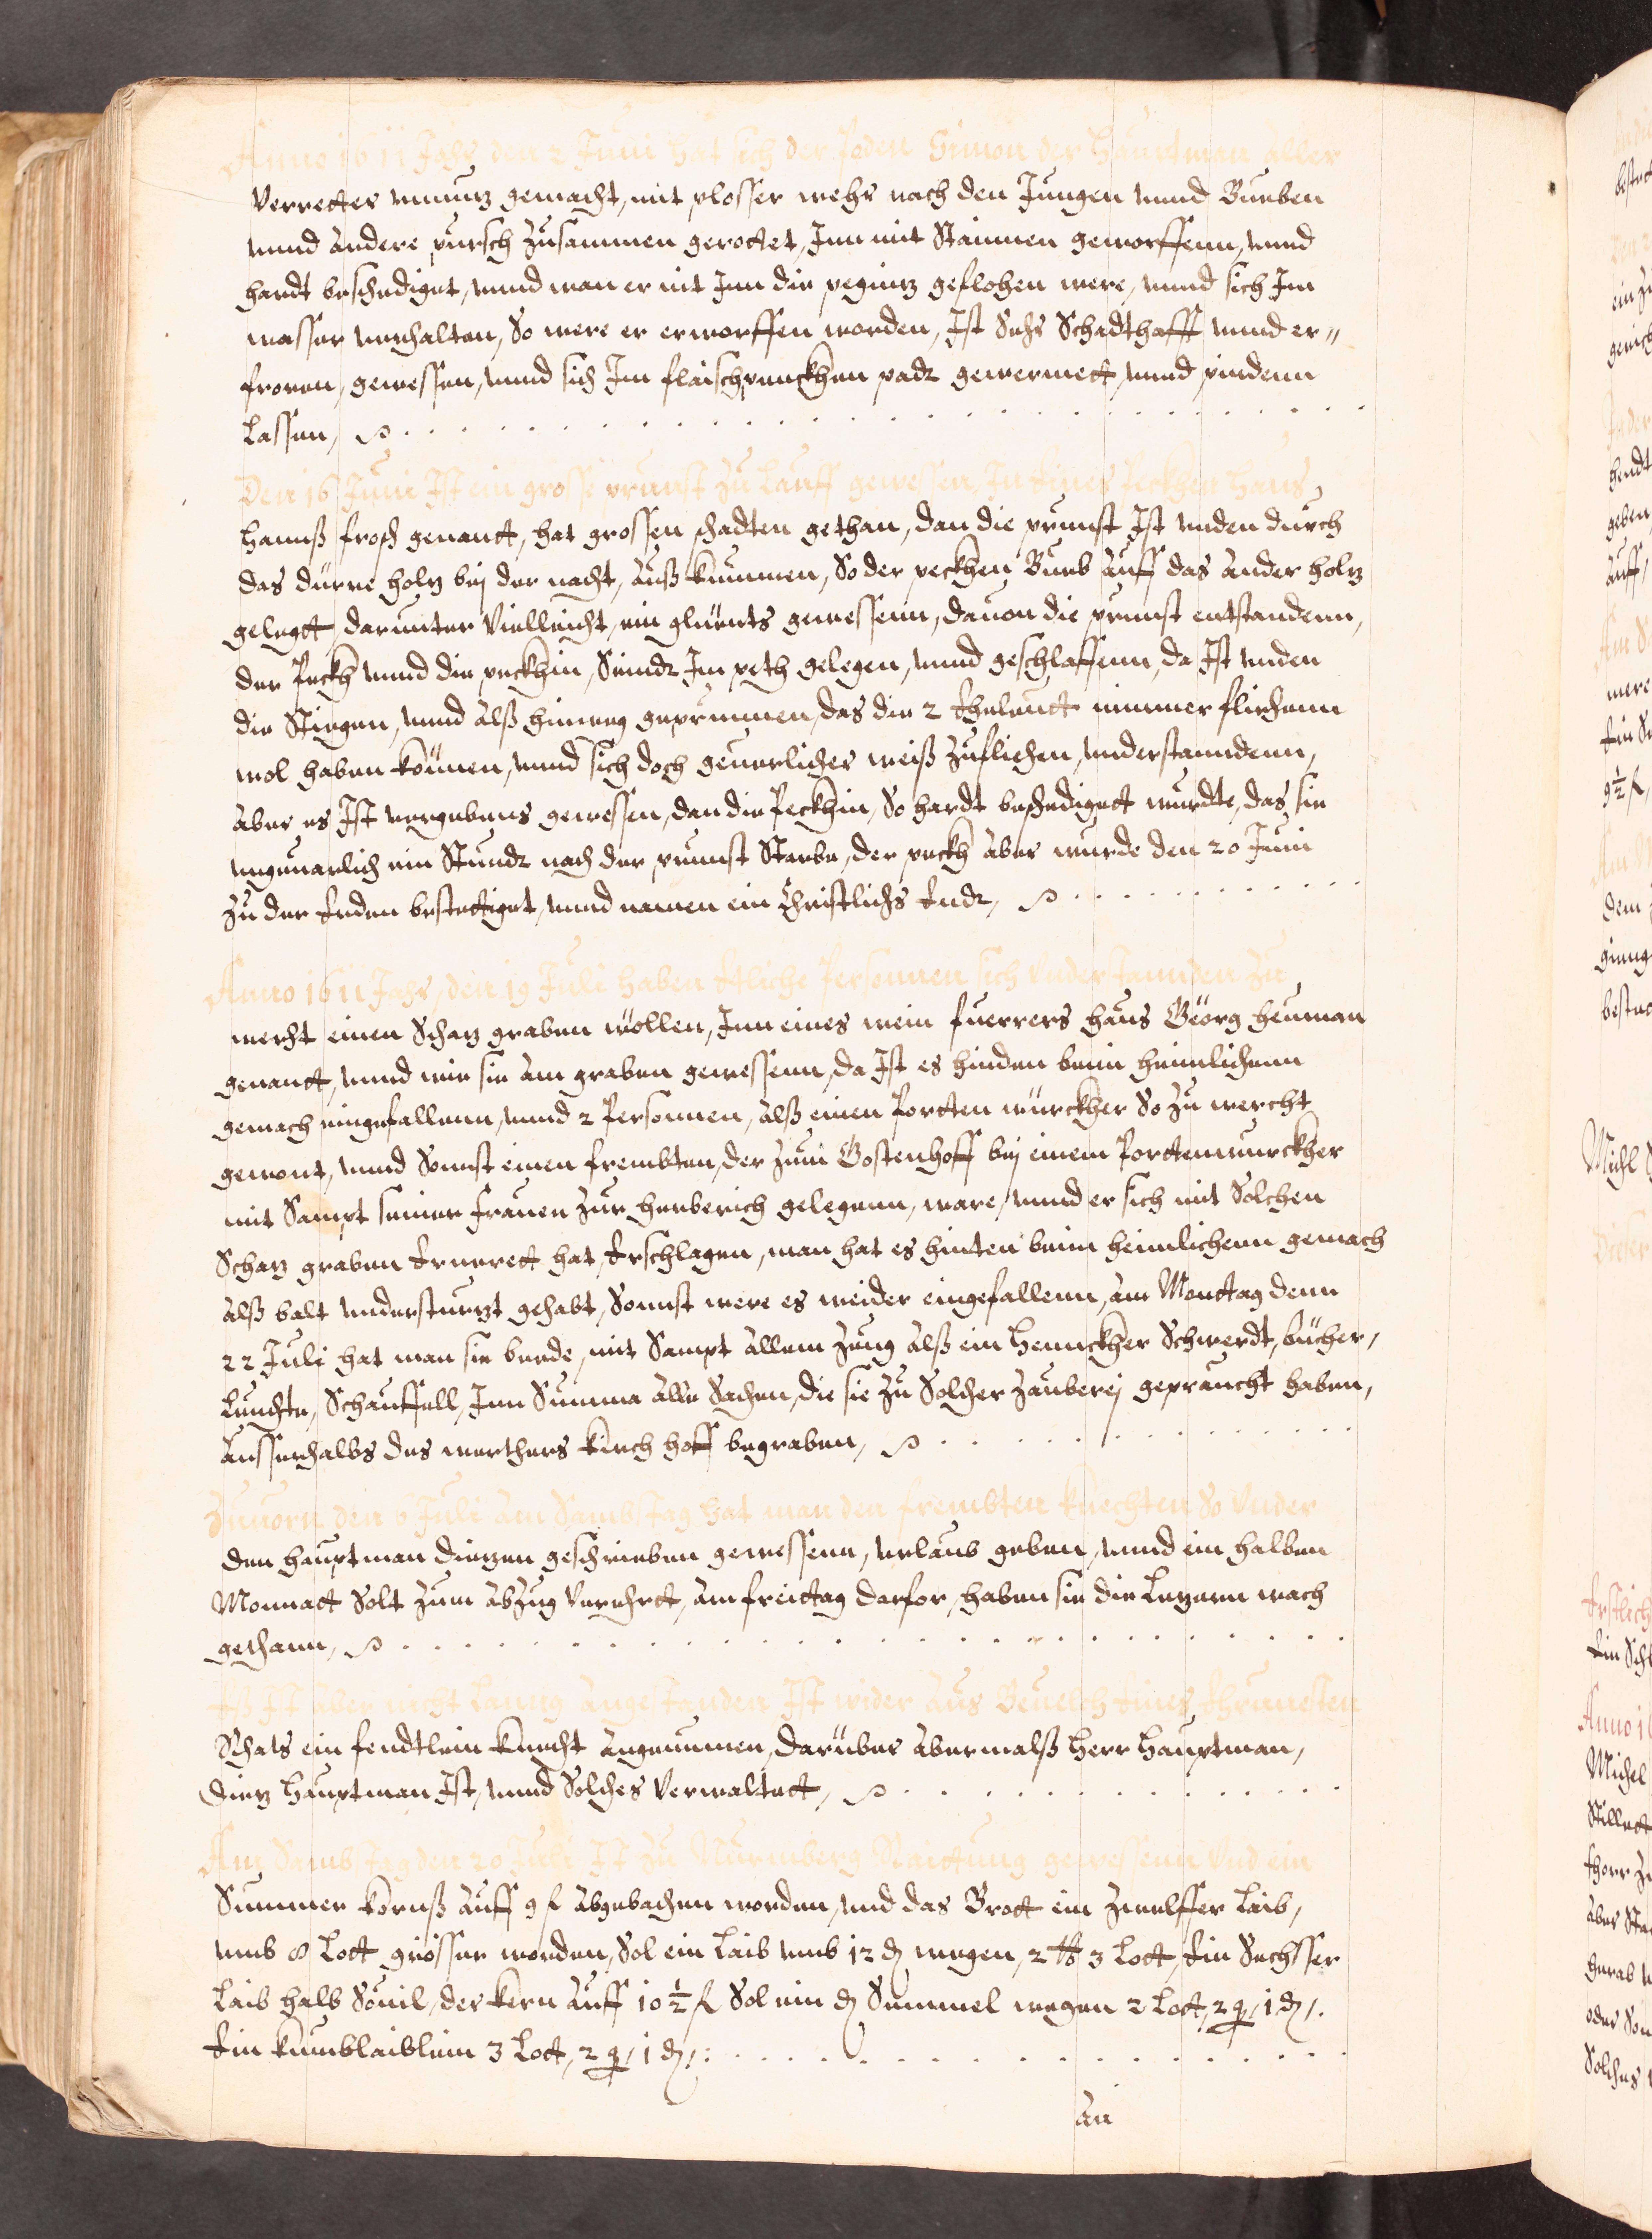 Anno 1611 Jahr den 2 Junii hat sich der Joden Simon der Hauptman aller
verretter vnnutz gemacht, mit plosser wehr nach den Jungen vnnd Bueben
vnnd andere pursch zusammen gerottet, Jnn mit Stainnen geworffenn, vnnd
hardt beschediget, vnnd wan er nit Jnn die pegnitz geflohen were, vnnd sich Jm
wasser verhalten, So were er erworffen worden, Jst Sehr Schadthafft vnnd er„
froren, gewessen, vnnd sich Jm flaischpenckhen padt gewermett, vnnd pindenn
Lassen,
Den 16 Junii Jst ein grosse prunst zu Lauff gewesen, Jn Eines Peckhen Haus,
Hannß frosch genantt, hat grossen schadten gethan, dan die prunst Jst vnden durch
das dürre holtz bej der nacht, auß kummen, So der peckhen Bueb auff das ander holtz
gelegtt, darunter Vielleicht, ein glüents gewessenn, dauon die prunst entstandenn,
der Peckh vnnd die peckhin, Seindt Jm peth gelegen, vnnd geschlaffenn, da Jst vnden
die Stiegen, vnnd alß hinweg geprunnen, das die 2 Eheleutt nimmer fliehenn
wol haben können, vnnd sich doch geuerlicher weiß zufliehen, vnderstanndenn,
aber es Jst vergebens gewessen, dan die Peckhin, So hardt beschedigett wurdte, das sie
vngeuarlich ein Stundt nach der prunst Starbe, der peckh aber wurde den 20 Junii
zu der Erden bestettiget, vnnd namen ein Christlichs Endt,
Anno 1611 Jahr, den 19 Juli haben Etliche Personnen sich vnder standen zu
werht einen Schatz graben wöllen, Jnn eines wein fuerrers haus Geörg Heuman
genantt, vnnd wie sie am graben gewessenn, da Jst es hinden beim heimlichenn
gemach eingefallenn, vnnd 2 Personnen, alß einen Portten würckher So zu wercht
gewont, vnnd Sonnst einen frembten, der zum Gostenhoff bej einem Porttenwurckher
mit Sampt seiner frauen zur herberich gelegenn, ware, vnnd er sich mit Solchen
Schatz graben Ernerett hat, Erschlagen, man hat es hinten beim heimlichenn gemach
alß balt vndersturtzt gehabt, Sonnst were es weider eingefallenn, am Monttag denn
22 Juli hat man sie beede, mit Sampt allem zeug alß ein Hennckher Schwerdt, bücher,
Leuchte, Schauffell, Jnn Summa alle Sachen, die sie zu Solcher zauberej gepraucht haben,
ausserhalbs des werthers kirch hoff begraben,
Zuuorn den 6 Juli am Sambstag hat man den frembten knechten So vnder
den hauptman dietzen geschrieben gewessenn, vrlaub geben, vnnd ein halben
Monnatt Solt zum abzug Verehrtt, am freittag darfor, haben sie die Letzern wach
gethann,
Eß Jst aber nicht Lanng angestanden Jst wider aus Beuelch Eines Ehrnuesten
Rhats ein fendtlein knecht angenummen, darüber abermalß herr Hauptman,
Dietz hauptman Jst, vnnd Solches Verwaltett,
Am Sambstag den 20 Juli Jst zu Nürmberg Raittung gewessenn vnd ein
Summer kornß auff 9 fl abgebachen worden, vnd das Brott ein zwelffer Laib,
vmb 8 Lott grösser worden, Sol ein Laib vmb 12 ₰ wegen, 2 ℔ 3 Lott, Ein Sechsser
Laib halb Souil, der kern auff 10 ½ fl Sol ein ₰ Semmel wegen 2 Lott, 2 q, 1 ₰,.
Ein kümblaiblein 3 Lott, 2 q, 1 ₰,:
an